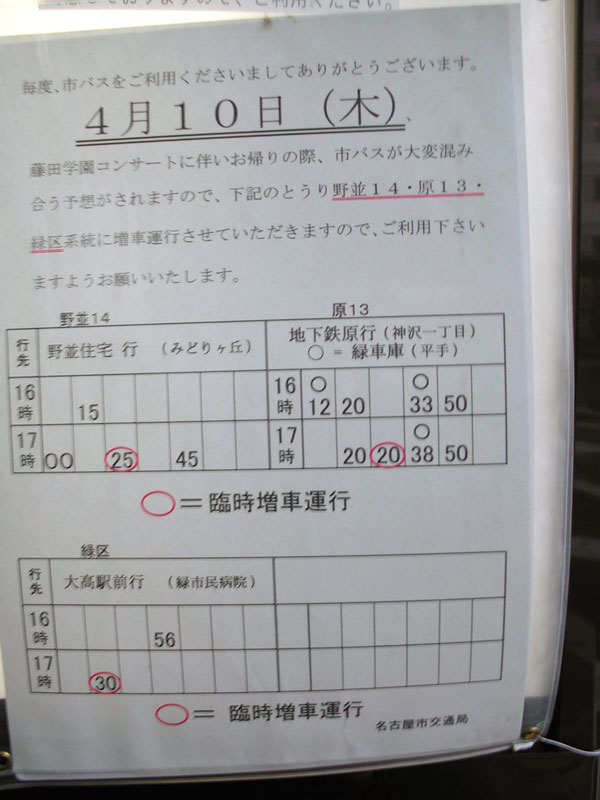 毎度、市バスをご利用くださいましてありがとうございます。
４月１０日（木）、
藤田学園コンサートに伴いお帰りの際、市バスが大変混み
合う予想がされますので、下記のとうり野並１４・原１３・
緑区系統に増車運行させていただきますので、ご利用下さい
ますようお願いいたします。
野並14
原13
行先 野並住宅 行 （みどりヶ丘） 地下鉄原行（神沢一丁目）
○ = 緑車庫（平手）
16時 15 16時 ○12 20 ○33 50
17時 00 25 45 17時 20 20 ○38 50
○＝臨時増車運行
緑区
行先 大高駅前行 （緑市民病院）
16時 56
17時 30
○＝ 臨時増車運行
名古屋市交通局